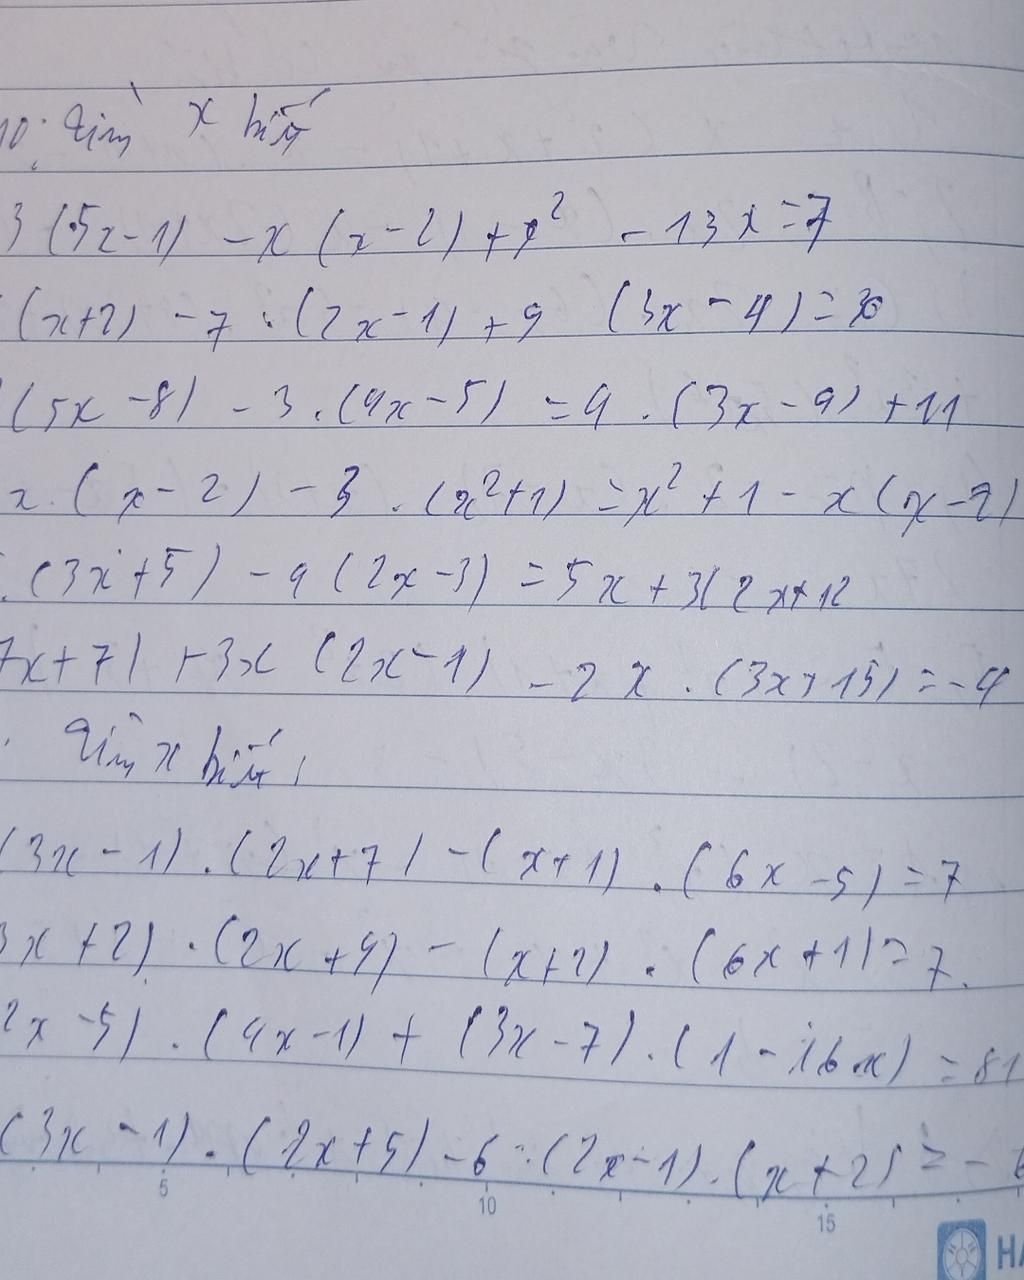 10: Tìm x biết
3 (5x-1) - x (x-2) + x² - 13x = 7
(x+2) - 7 . (2x-1) + 9 (3x-4) = 30
(5x-8) - 3 . (4x-5) = 4 . (3x-4) + 11
x . (x-2) - 3 . (x²+1) = x² + 1 - x (x-2)
. (3x+5) - 4 (2x-3) = 5x + 3(2x+12
7x+7) + 3x (2x-1) - 2x . (3x+15) = -4
Tìm x biết
(3x-1) . (2x+7) - (x+1) . (6x-5) = 7
3x+2) . (2x+9) - (x+2) . (6x+1) = 7.
2x-5) . (4x-1) + (3x-7) . (1-16x) = 81
(3x-1) . (2x+5) - 6 . (2x-1) . (x+2) = - 6
5 10 15
HA